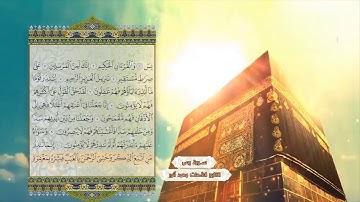 يسٓ وَٱلۡقُرۡءَانِ ٱلۡحَكِيمِ إِنَّكَ لَمِنَ ٱلۡمُرۡسَلِينَ عَلَىٰ
صِرَٰطٖ مُّسۡتَقِيمٖ تَنزِيلَ ٱلۡعَزِيزِ ٱلرَّحِيمِ لِتُنذِرَ قَوۡمٗا
مَّآ أُنذِرَ ءَابَآؤُهُمۡ فَهُمۡ غَٰفِلُونَ لَقَدۡ حَقَّ ٱلۡقَوۡلُ عَلَىٰٓ أَكۡثَرِهِمۡ
فَهُمۡ لَا يُؤۡمِنُونَ إِنَّا جَعَلۡنَا فِيٓ أَعۡنَٰقِهِمۡ أَغۡلَٰلٗا فَهِيَ إِلَى
ٱلۡأَذۡقَانِ فَهُم مُّقۡمَحُونَ وَجَعَلۡنَا مِنۢ بَيۡنِ أَيۡدِيهِمۡ سَدّٗا
وَمِنۡ خَلۡفِهِمۡ سَدّٗا فَأَغۡشَيۡنَٰهُمۡ فَهُمۡ لَا يُبۡصِرُونَ وَسَوَآءٌ
عَلَيۡهِمۡ ءَأَنذَرۡتَهُمۡ أَمۡ لَمۡ تُنذِرۡهُمۡ لَا يُؤۡمِنُونَ إِنَّمَا تُنذِرُ
مَنِ ٱتَّبَعَ ٱلذِّكۡرَ وَخَشِيَ ٱلرَّحۡمَٰنَ بِٱلۡغَيۡبِۖ فَبَشِّرۡهُ بِمَغۡفِرَةٖ
سورة يس